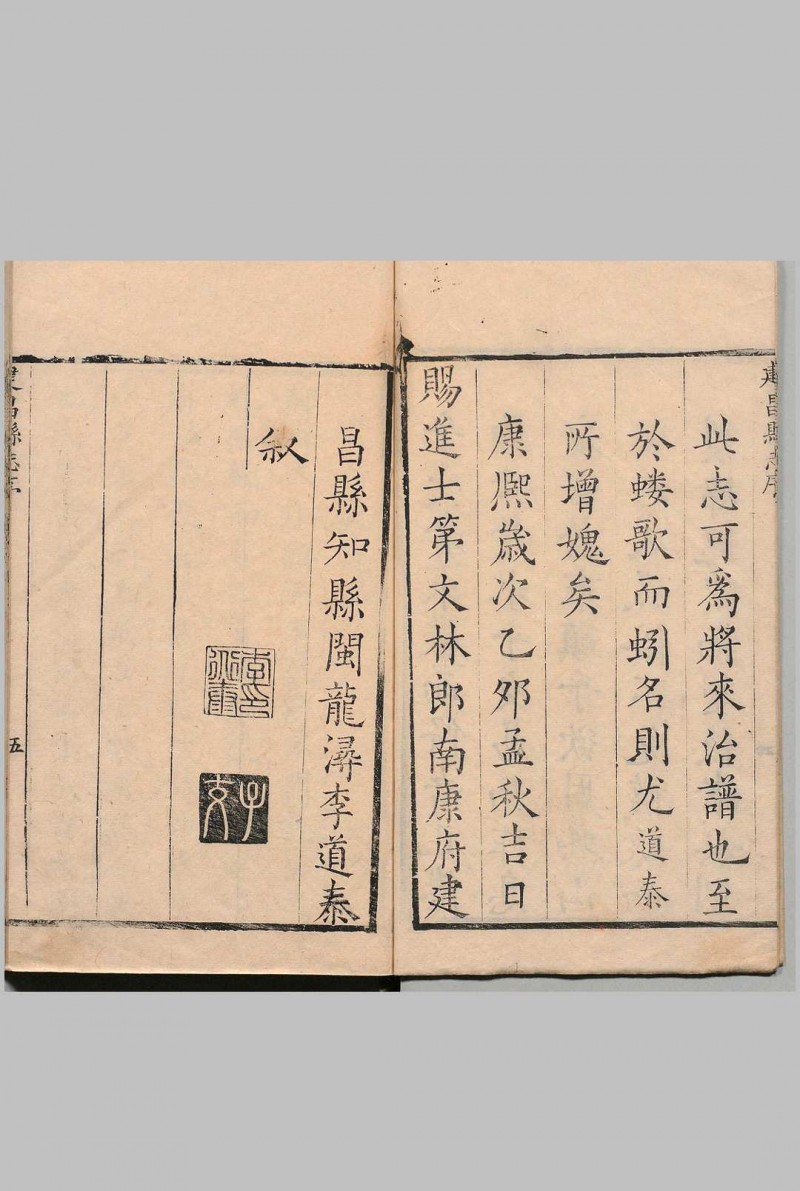 建昌縣志序
此志可爲將來治譜也至
於蛙歌而蚓名則尤道泰
所增媿矣
康熙歲次乙夘孟秋吉日
賜進士第文林郎南康府建
昌縣知縣閩龍潯李道泰
叙
李道泰印
子交
建昌縣志
五